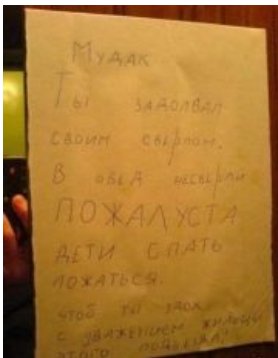 Мудак
Ты задолбал
своим сверлом.
В обед несверли
ПОЖАЛУСТА
ДЕТИ СПАТЬ
ЛОЖАТЬСЯ.
чтоб ты здох
с уважением жильцы
этого подъезда!